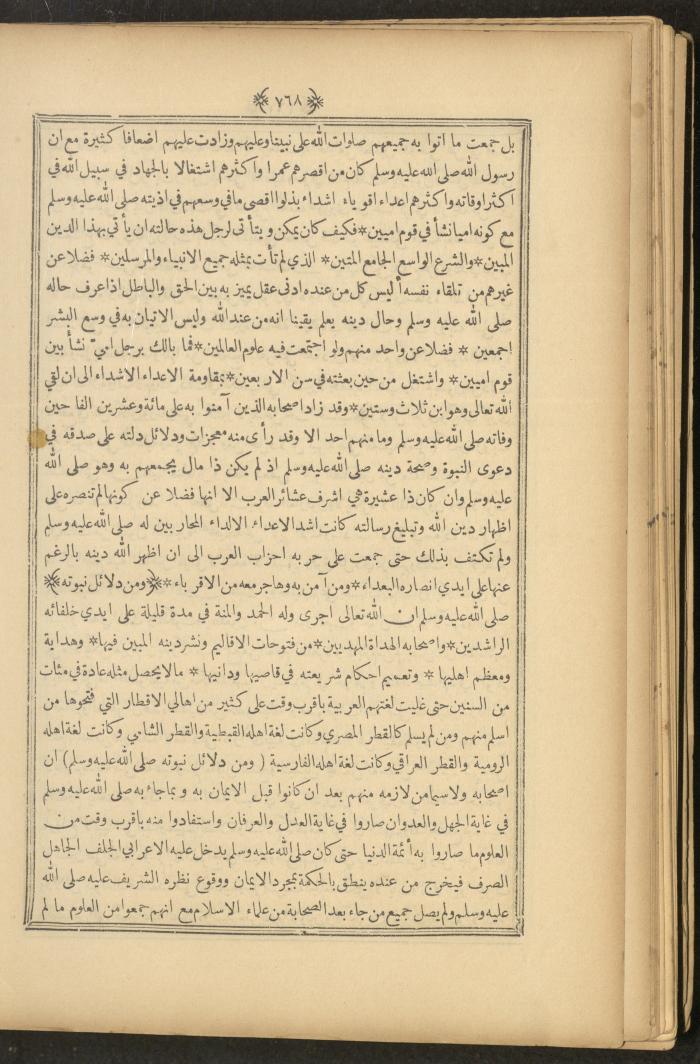 ﴿ ٧٦٨ ﴾
بل جمعت ما اتوا به جميعهم صلوات الله على نبينا وعليهم وزادت عليهم اضعافا كثيرة مع ان
رسول الله صلى الله عليه وسلم كان من اقصرهم عمرا واكثرهم اشتغالا بالجهاد في سبيل الله في
اكثر اوقاته واكثرهم اعداء اقوياء اشداء بذلوا اقصى ما في وسعهم في اذيته صلى الله عليه وسلم
مع كونه اميا نشأ في قوم اميين * فكيف كان يمكن ويتأتى لرجل هذه حالته ان يأتي بهذا الدين
المبين * والشرع الواسع الجامع المتين * الذي لم تأت بمثله جميع الانبياء والمرسلين * فضلا عن
غيرهم من تلقاء نفسه أليس كل من عنده ادنى عقل يميز به بين الحق والباطل اذا عرف حاله
صلى الله عليه وسلم وحال دينه يعلم يقينا انه من عند الله وليس الاتيان به في وسع البشر
اجمعين * فضلا عن واحد منهم ولو اجتمعت فيه علوم العالمين * فما بالك برجل اميّ نشأ بين
قوم اميين * واشتغل من حين بعثته في سن الاربعين * بمقاومة الاعداء الاشداء الى ان لقي
الله تعالى وهو ابن ثلاث وستين * وقد زاد اصحابه الذين آمنوا به على مائة وعشرين الفا حين
وفاته صلى الله عليه وسلم وما منهم احد الا وقد رأى منه معجزات ودلائل دلته على صدقه في
دعوى النبوة وصحة دينه صلى الله عليه وسلم اذ لم يكن ذا مال يجمعهم به وهو صلى الله
عليه وسلم وان كان ذا عشيرة هي اشرف عشائر العرب الا انها فضلا عن كونها لم تنصره على
اظهار دين الله وتبليغ رسالته كانت اشد الاعداء الالداء المحاربين له صلى الله عليه وسلم
ولم تكتف بذلك حتى جمعت على حربه احزاب العرب الى ان اظهر الله دينه بالرغم
عنها على ايدي انصاره البعداء * ومن آمن به وهاجر معه من الاقرباء * ﴿ ومن دلائل نبوته ﴾
صلى الله عليه وسلم ان الله تعالى اجرى وله الحمد والمنة في مدة قليلة على ايدي خلفائه
الراشدين * واصحابه الهداة المهديين * من فتوحات الاقاليم ونشر دينه المبين فيها * وهداية
ومعظم اهليها * وتعميم احكام شريعته في قاصيها ودانيها * ما لا يحصل مثله عادة في مئات
من السنين حتى غلبت لغتهم العربية باقرب وقت على كثير من اهالي الاقطار التي فتحوها من
اسلم منهم ومن لم يسلم كالقطر المصري وكانت لغة اهله القبطية والقطر الشامي وكانت لغة اهله
الرومية والقطر العراقي وكانت لغة اهله الفارسية ( ومن دلائل نبوته صلى الله عليه وسلم ) ان
اصحابه ولا سيما من لازمه منهم بعد ان كانوا قبل الايمان به وبما جاء به صلى الله عليه وسلم
في غاية الجهل والعدوان صاروا في غاية العدل والعرفان واستفادوا منه باقرب وقت من
العلوم ما صاروا به أئمة الدنيا حتى كان صلى الله عليه وسلم يدخل عليه الاعرابي الجلف الجاهل
الصرف فيخرج من عنده ينطق بالحكمة بمجرد الايمان ووقوع نظره الشريف عليه صلى الله
عليه وسلم ولم يصل جميع من جاء بعد الصحابة من علماء الاسلام مع انهم جمعوا من العلوم ما لم